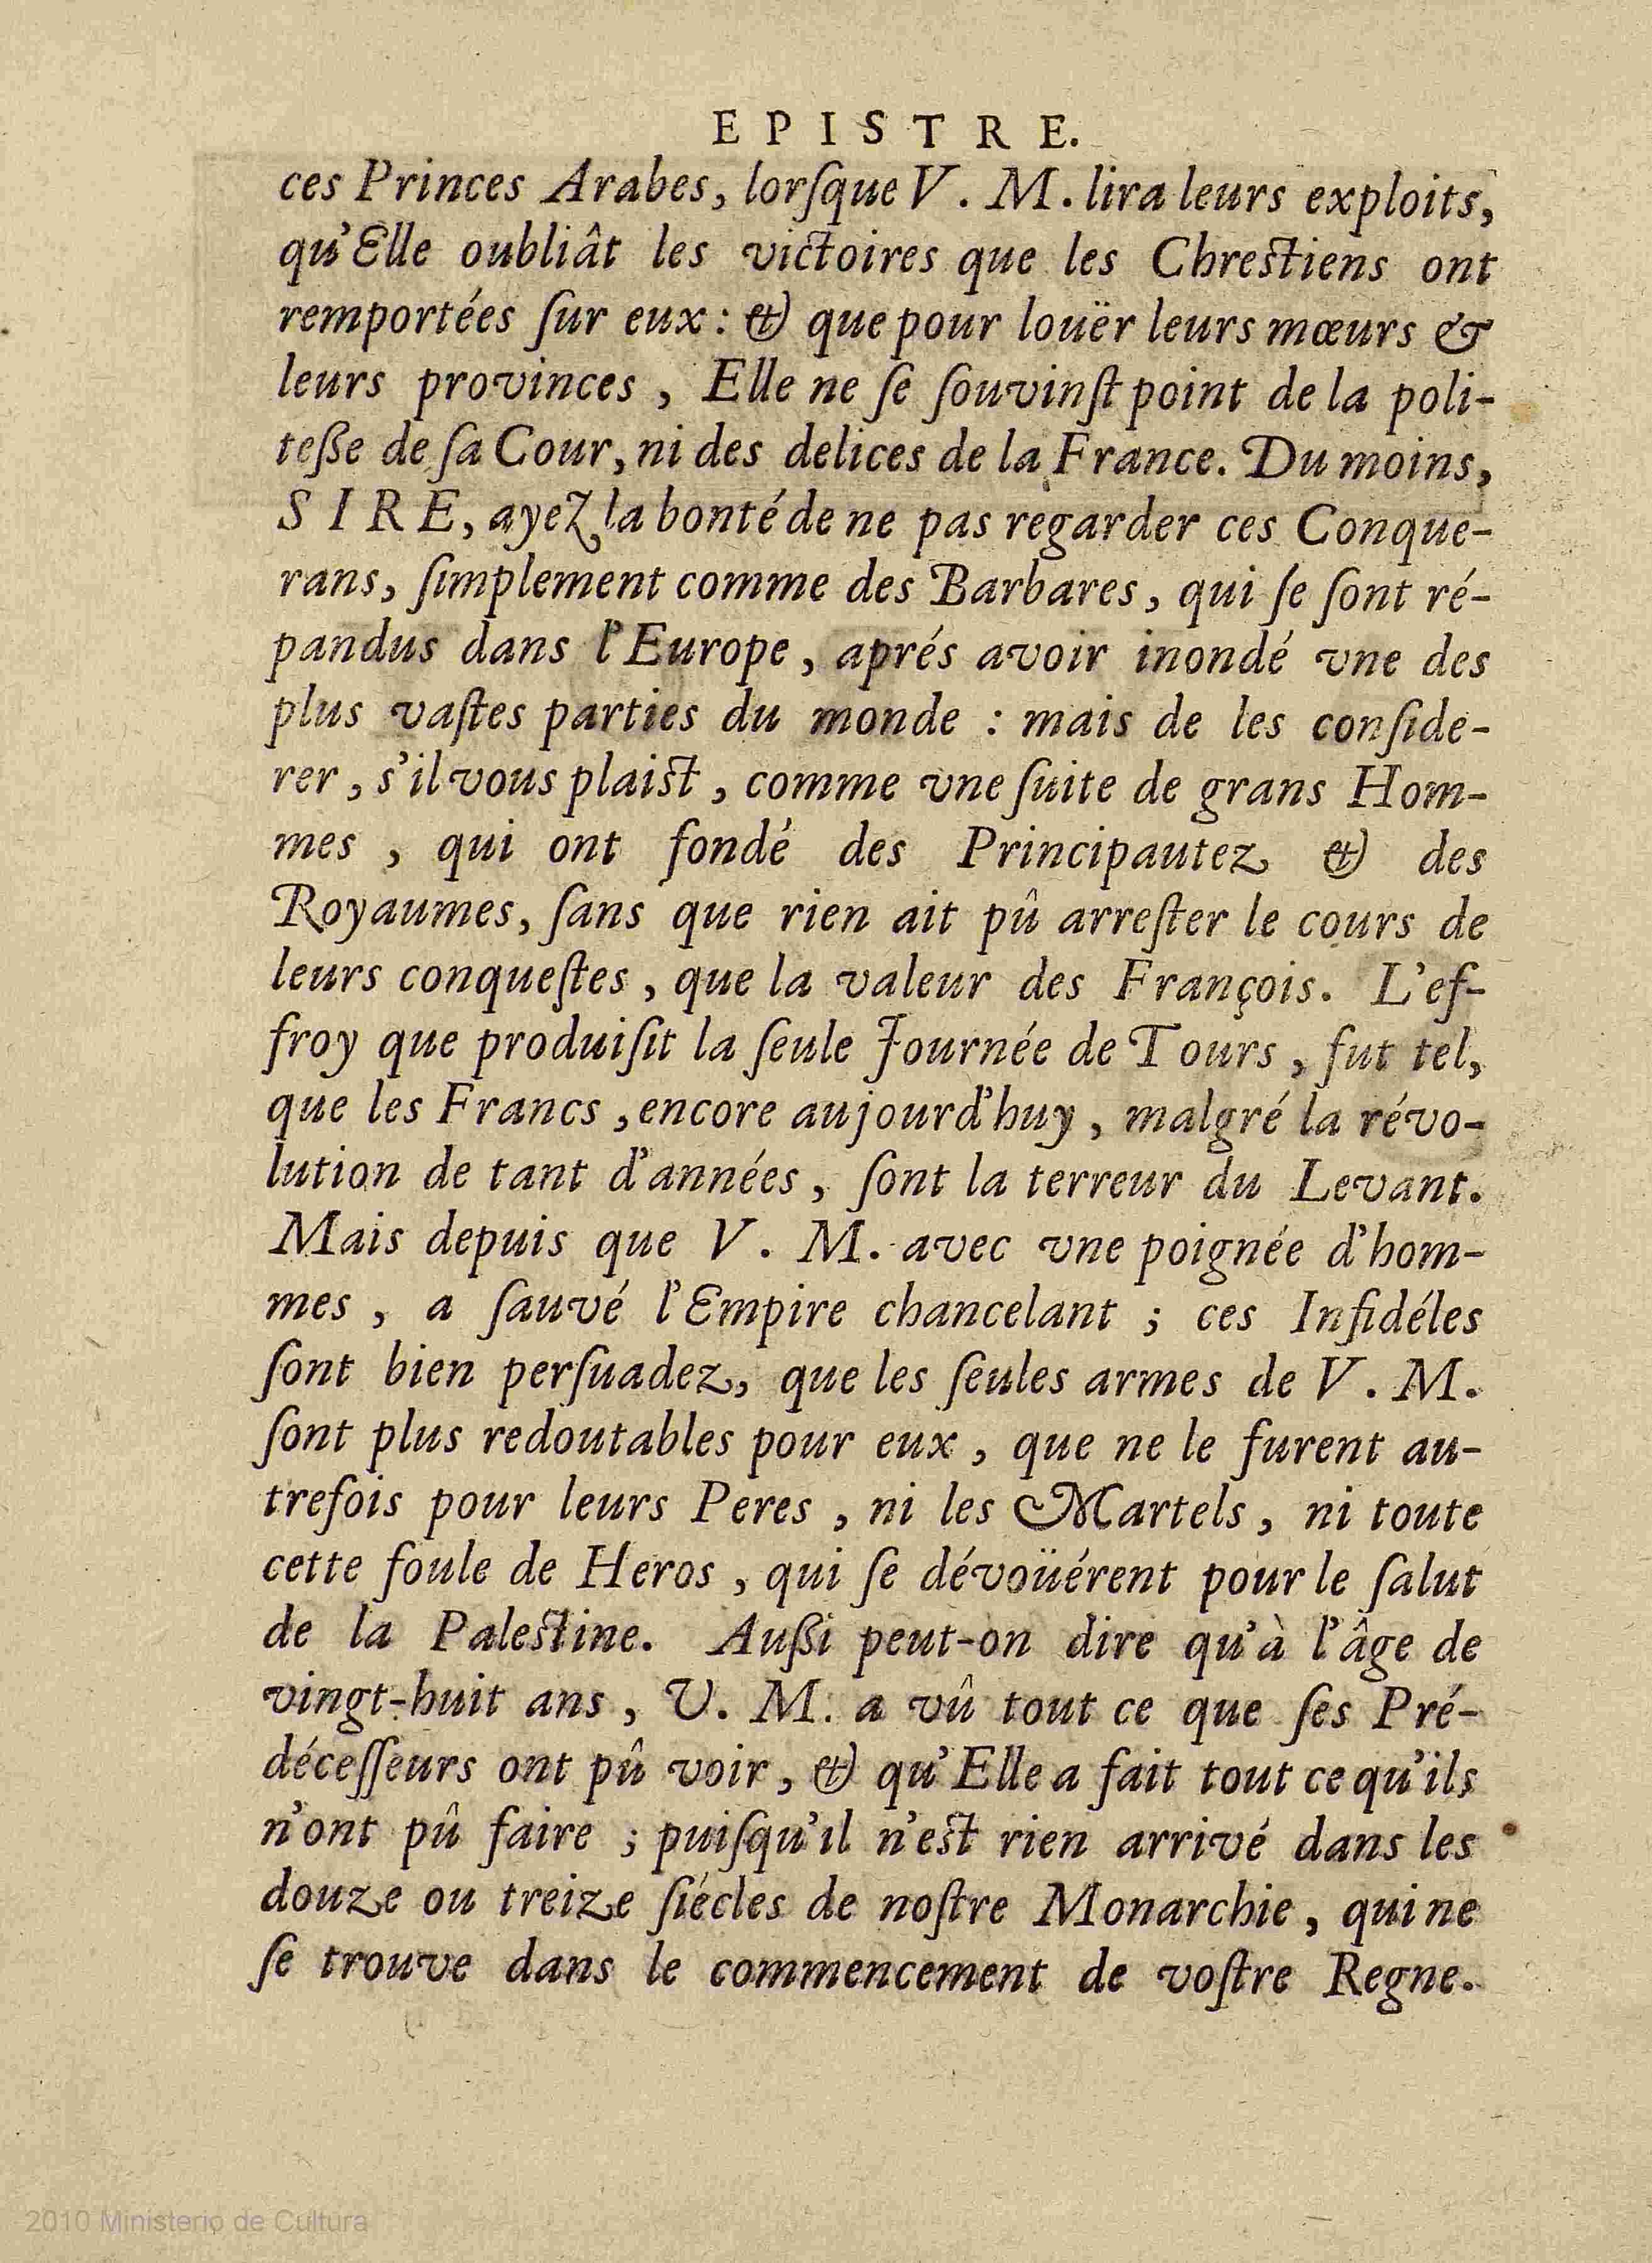 EPISTRE.
ces Princes Arabes, lorſque V. M. lira leurs exploits,
qu'Elle oubliât les victoires que les Chreſtiens ont
remportées ſur eux : & que pour louër leurs mœurs &
leurs provinces, Elle ne ſe ſouvinſt point de la poli-
teſſe de ſa Cour, ni des delices de la France. Du moins,
SIRE, ayez la bonté de ne pas regarder ces Conque-
rans, ſimplement comme des Barbares, qui ſe ſont ré-
pandus dans l'Europe, aprés avoir inondé vne des
plus vaſtes parties du monde : mais de les conſide-
rer, s'il vous plaiſt, comme vne ſuite de grans Hom-
mes, qui ont fondé des Principautez & des
Royaumes, ſans que rien ait pû arreſter le cours de
leurs conqueſtes, que la valeur des François. L'ef-
froy que produiſit la ſeule Journée de Tours, fut tel,
que les Francs, encore aujourd'huy, malgré la révo-
lution de tant d'années, ſont la terreur du Levant.
Mais depuis que V. M. avec vne poignée d'hom-
mes, a ſauvé l'Empire chancelant ; ces Infidéles
ſont bien perſuadez, que les ſeules armes de V. M.
ſont plus redoutables pour eux, que ne le furent au-
trefois pour leurs Peres, ni les Martels, ni toute
cette foule de Heros, qui ſe dévoüérent pour le ſalut
de la Paleſtine. Auſſi peut-on dire qu'à l'âge de
vingt-huit ans, V. M. a vû tout ce que ſes Pré-
déceſſeurs ont pû voir, & qu'Elle a fait tout ce qu'ils
n'ont pû faire ; puiſqu'il n'eſt rien arrivé dans les
douze ou treize ſiécles de noſtre Monarchie, qui ne
ſe trouve dans le commencement de voſtre Regne.
2010 Ministerio de Cultura